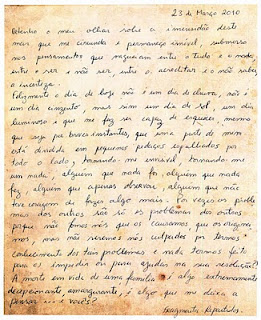 23 de Março 2010
Debruho o meu olhar sobre a imensidão deste
mar que me circunda e permaneço imóvel, submerso
nos pensamentos que vagueiam entre o tudo e o nada,
entre o ser e não ser, entre o acreditar e o não saber,
a incerteza.
Felizmente o dia de hoje não é um dia de chuva, não é
um dia cinzento, mas sim um dia de sol, um dia
luminoso e que me faz ser capaz de esquecer, mesmo
que seja por breves instantes, que uma parte de mim
está dividida em pequenos pedaços espalhados por
todo o lado, tornando-me invisível, tornando-me
um nada, alguém que nada foi, alguém que nada
fez, alguém que apenas observou, alguém que não
teve coragem de fazer algo mais. Por vezes os proble
mas dos outros não são só problemas dos outros
porque não fomos nós que os causámos que os criá
mos, mas não seremos nós culpados por termos
conhecimento dos tais problemas e nada termos feito
para os impedir ou para ajudar na sua resolução?
A morte em vida de uma família é algo extremamente
decepcionante, amargurante, é algo que me deixa a
pensar... e vocês?
Fragmentos Repartidos.